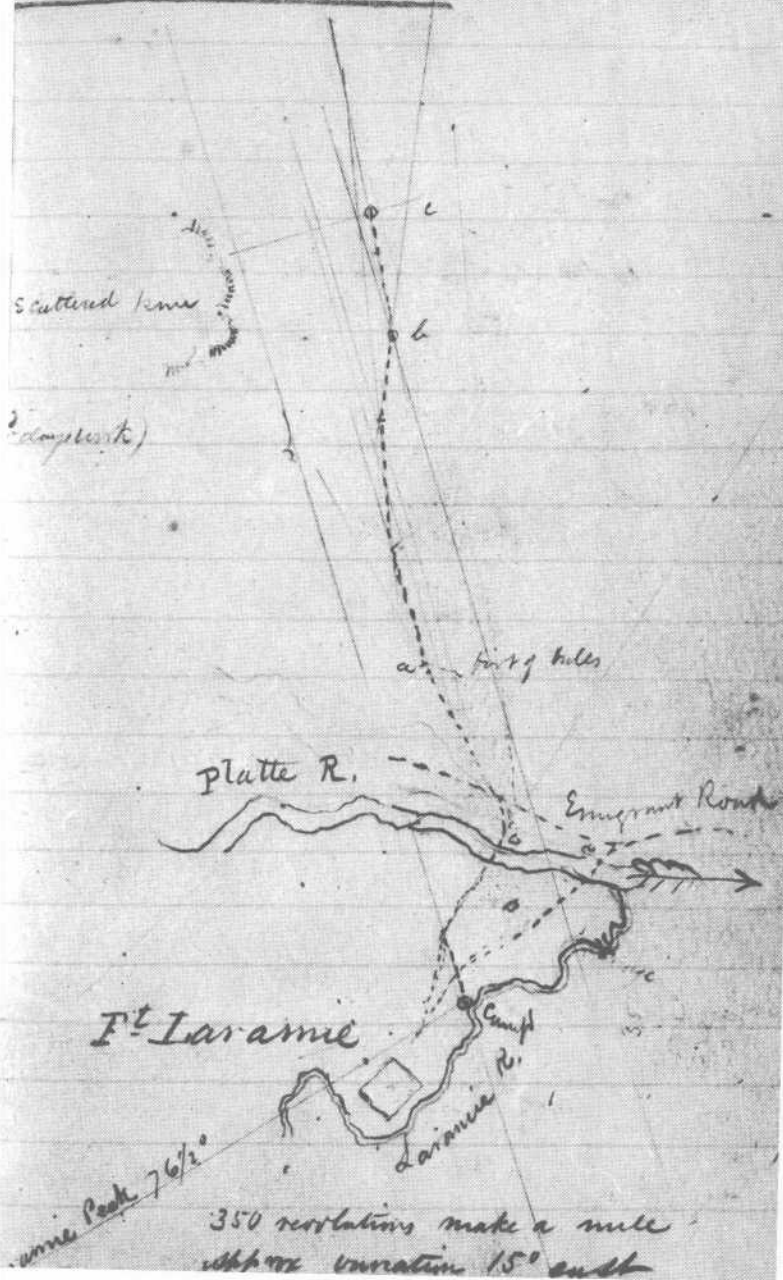 c
scattered
b
a foot of hills
Platte R.
Emigrant Road
Ft Laramie
Camp
Laramie R.
Peak 76½°
350 revolutions make a mile
approx variation 15° east